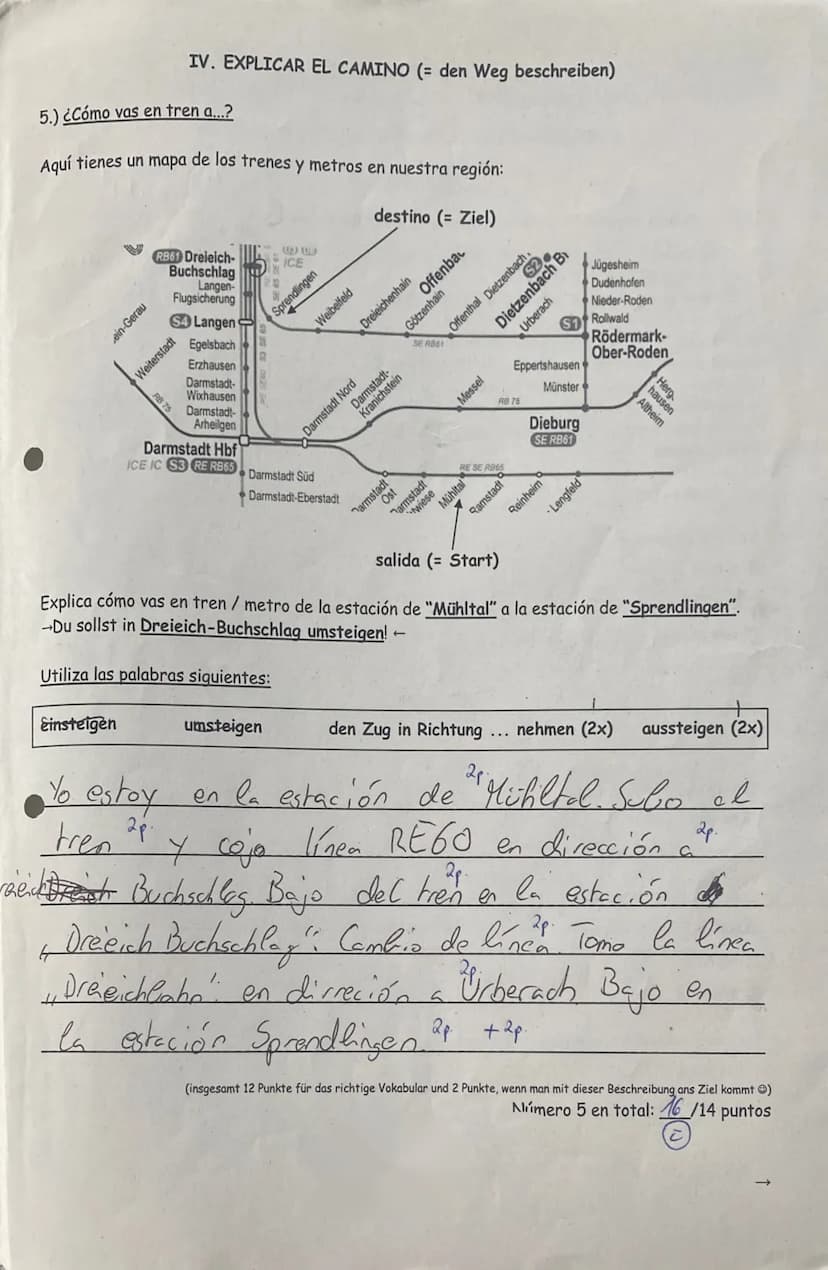 IV. EXPLICAR EL CAMINO (= den Weg beschreiben)
5.) ¿Cómo vas en tren a...?
Aquí tienes un mapa de los trenes y metros en nuestra región:
destino (= Ziel)
RB61 Dreieich-
Buchschlag
Langen-
Flugsicherung
S4 Langen
Egelsbach
Erzhausen
Darmstadt-
Wixhausen
Darmstadt-
Arheilgen
Darmstadt Hbf
ICE IC S3 RE RB65
Darmstadt Süd
Darmstadt-Eberstadt
ein-Gerau
Weiterstadt
RB 75
ICE
Sprendlingen
Weibelfeld
Dreieichenhain
Götzenhain
Offenba
Offenthal
Dietzenbach
S2
Dietzenbach B
Urberach
SE RB61
S1
Jügesheim
Dudenhofen
Nieder-Roden
Rollwald
Rödermark-
Ober-Roden
Eppertshausen
Münster
Darmstadt Nord
Darmstadt-
Kranichstein
Messel
RB 76
Dieburg
SE RB61
Herg
hausen
Altheim
RE SE RB65
armstadt
Ost
armstadt
wiese
Mühltal
Ramstadt
Reinheim
Lengfeld
salida (= Start)
Explica cómo vas en tren / metro de la estación de "Mühltal" a la estación de "Sprendlingen".
→Du sollst in Dreieich-Buchschlag umsteigen! ←
Utiliza las palabras siguientes:
einsteigen umsteigen den Zug in Richtung ... nehmen (2x) aussteigen (2x)
Yo estoy en la estación de 2p. Mühltal. Subo al
tren 2p. y cojo línea RE60 en dirección a 2p.
Buchschlag. Bajo del tren 2p. en la estación
„Dreieich Buchschlag": Cambio de línea 2p. Tomo la línea
„Dreieichbahn": en dirreción a 2p. Urberach Bajo en
la estación Sprendlingen 2p. +2p.
(insgesamt 12 Punkte für das richtige Vokabular und 2 Punkte, wenn man mit dieser Beschreibung ans Ziel kommt ☺)
Número 5 en total: 16 /14 puntos
→